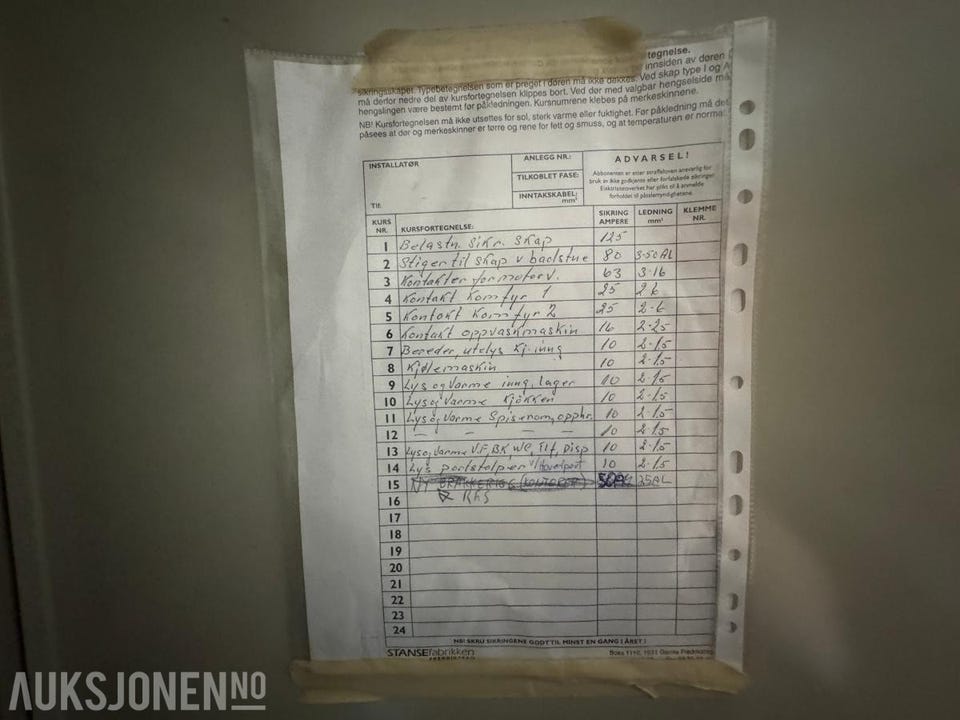 tegnelse.
innsiden av døren
sikringsskapet. Typebetegnelsen som er preget i døren må ikke dekkes. Ved skap type I og A
må derfor nedre del av kursfortegnelsen klippes bort. Ved dør med valgbar hengselside må
hengslingen være bestemt før påkledningen. Kursnumrene klebes på merkeskinnene.
NB! Kursfortegnelsen må ikke utsettes for sol, sterk varme eller fuktighet. Før påkledning må det
påsees at dør og merkeskinner er tørre og rene for fett og smuss, og at temperaturen er normal
INSTALLATØR
Tlf.
ANLEGG NR.:
TILKOBLET FASE:
INNTAKSKABEL: mm²
ADVARSEL!
Abbonenten er etter straffeloven ansvarlig for
bruk av ikke godkjente eller forfalskede sikringer
Elektrisitetsverket har plikt til å anmelde
forholdet til påtalemyndighetene.
KURS NR. KURSFORTEGNELSE: SIKRING AMPERE LEDNING mm² KLEMME NR.
1 Belastn. sikr. skap 125
2 Stiger til skap v badstue 80 3·50AL
3 Kontakter for motorv. 63 3·16
4 Kontakt Komfyr 1 25 2·6
5 Kontakt Komfyr 2 25 2·6
6 Kontakt oppvaskmaskin 16 2·25
7 Bereder, utelys kj.inng 10 2·1,5
8 Kjølemaskin 10 2·1,5
9 Lys og Varme inng, lager 10 2·1,5
10 Lys og Varme Kjökken 10 2·1,5
11 Lys og Varme Spiserom, opphr. 10 2·1,5
12 — — — — 10 2·1,5
13 Lys og Varme VF, BK, WC, Disp 10 2·1,5
14 Lys portstolper v/Hovedport 10 2·1,5
15 NY BRAKKERIGG (KONTORER) 35AL
16
17
18
19
20
21
22
23
24
NB! SKRU SIKRINGENE GODT TIL MINST EN GANG I ÅRET!
STANSEfabrikken
FREDRIKSTAD
AUKSJONEN.NO